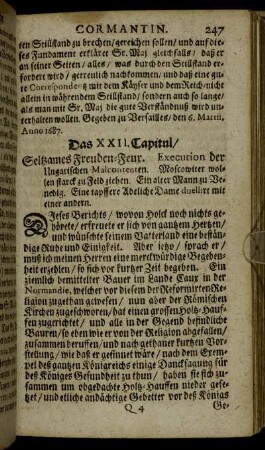 CORMANTIN. 247
ten Stillstand zu brechen/ gereichen sollen/ und auf die-
ses Fundament erkläret Sr. Maj. gleichfalls/ daß er
an seiner Seiten/ alles/ was durch den Stillstand er-
fordert wird/ getreulich nachkommen/ und daß eine gu-
te Correspondentz mit dem Käyser und dem Reich/nicht
allein in währendem Stillstand/ sondern auch so lange/
als man mit Sr. Maj die gute Verständnuß wird un-
terhalten wollen. Gegeben zu Versailles/ den 6. Martii,
Anno 1687.
Das XXII. Capitul/
Seltzames Freuden-Feur. Execution der
Ungarischen Malcontenten. Moscowiter wol-
len starck zu Feld ziehen. Ein alter Mann zu Ve-
nedig. Eine tapffere Adeliche Dame duellirt mit
einer andern.
DIeses Berichts/ wovon Holck noch nichts ge-
höret/ erfreuete er sich von gantzem Hertzen/
und wünschte seinem Vatterland eine bestän-
dige Ruhe und Einigkeit. Aber jetzo/ sprach er/
muß ich meinen Herren eine merckwürdige Begeben-
heit erzehlen/ so sich vor kurtzer Zeit begeben. Ein
ziemlich bemittelter Bauer im Lande Caux in der
Normandie, welcher vor diesem der Reformirten Re-
ligion zugethan gewesen/ nun aber der Römischen
Kirchen zugeschworen/ hat einen grossen Holtz-Hauf-
fen zugerichtet/ und alle in der Gegend befindliche
Bauren/ so eben wie er von der Religion abgefallen/
zusammen beruffen/ und nach gethaner kurtzen Vor-
stellung/ wie daß er gesinnet wäre/ nach dem Exem-
pel deß gantzen Königreichs einige Dancksagung für
des Königes Gesundheit zu thun/ haben sie sich zu-
sammen um obgedachte Holtz-Hauffen nieder gese-
tzet/ und etliche andächtige Gebetter vor deß Königs
Q 4 Ge-